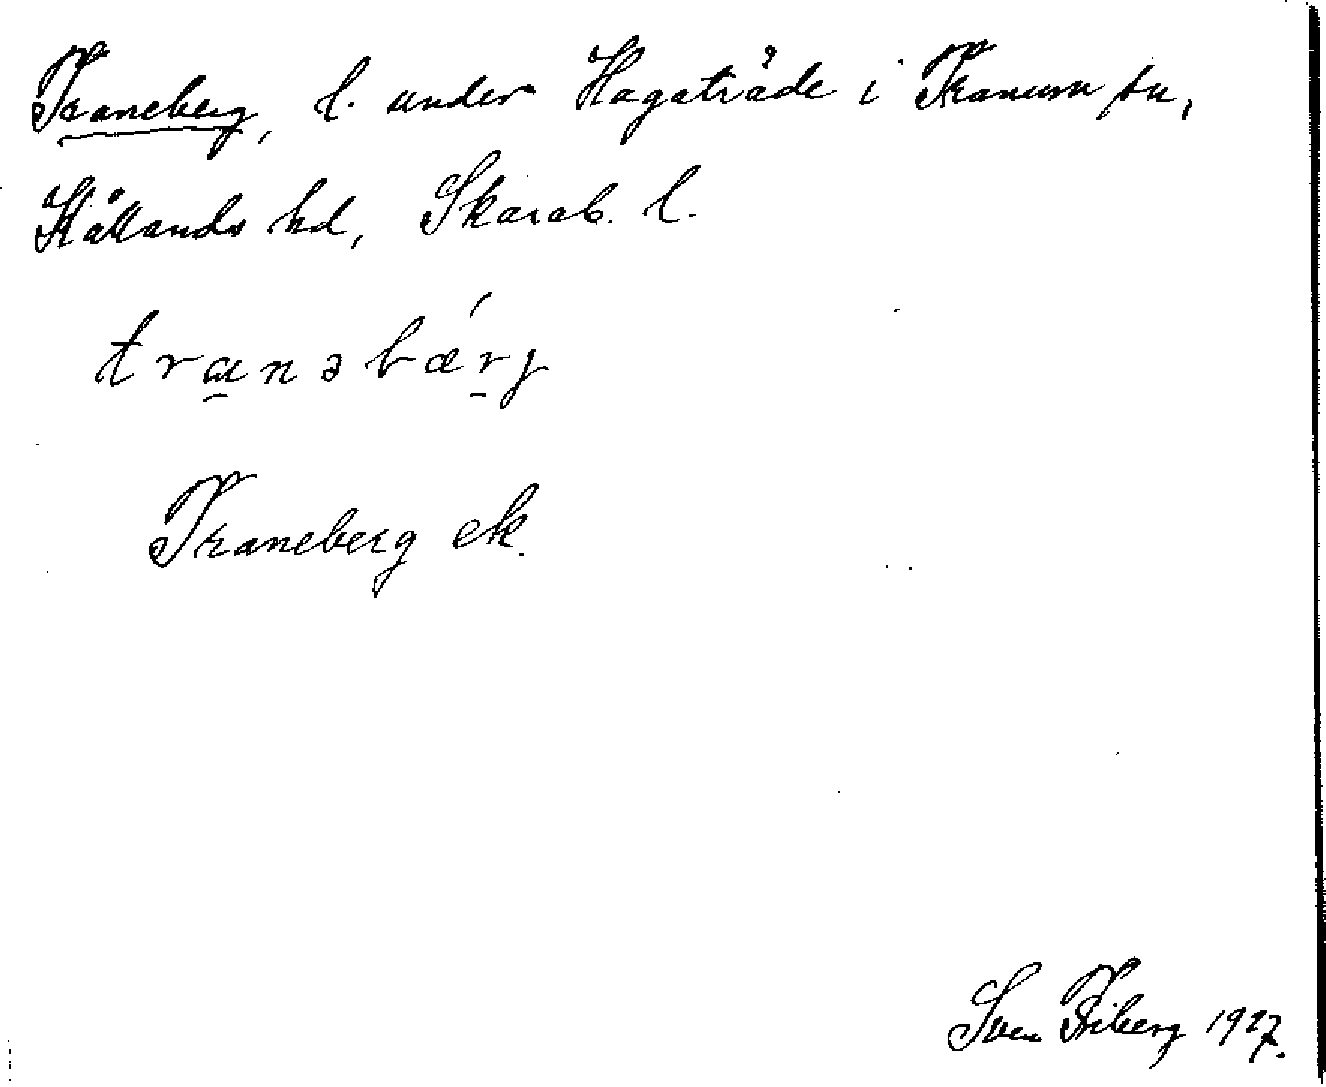 Traneberg, l. under Hagaträde i Tranum sn,
Kållands hd, Skarab. l.
tranəbærj
Traneberg ek.
Sven Friberg 1927.